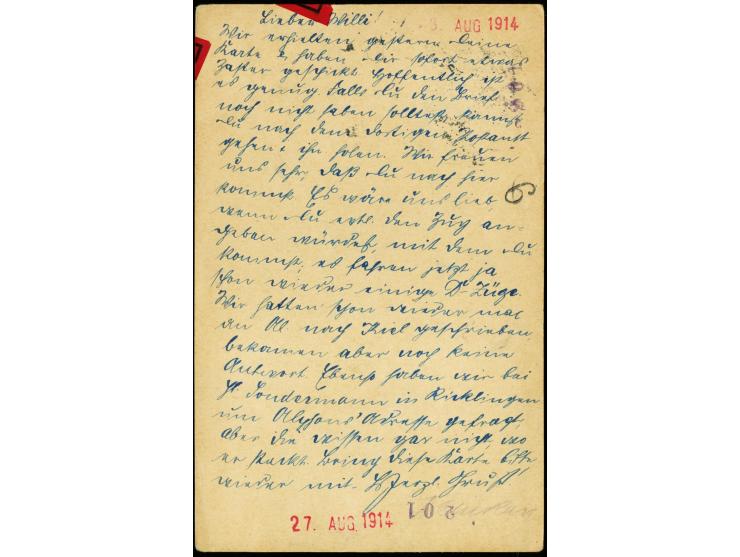 Lieber Willi!
3. AUG 1914
Wir erhielten gestern deine
Karte & haben dir sofort etwas
Zaster geschickt. Hoffentlich ist
es genug. Falls du den Brief
noch nicht haben solltest, kannst
du nach dem dortigen Postamt
gehen & ihn holen. Wir freuen
uns sehr, daß du nach hier
kommst. Es wäre uns lieb,
wenn du evtl. den Zug an-
geben würdest, mit dem du
kommst; es fahren jetzt ja
schon wieder einige D-Züge.
Wir hatten schon wieder mal
an Al. nach Kiel geschrieben,
bekamen aber noch keine
Antwort. Ebenso haben wir bei
Sondermann in Ricklingen
um Alphons' Adresse gefragt,
aber die wissen gar nicht wo
er steckt. Bring diese Karte bitte
wieder mit. Herzl. Gruß!
6
27. AUG. 1914
201